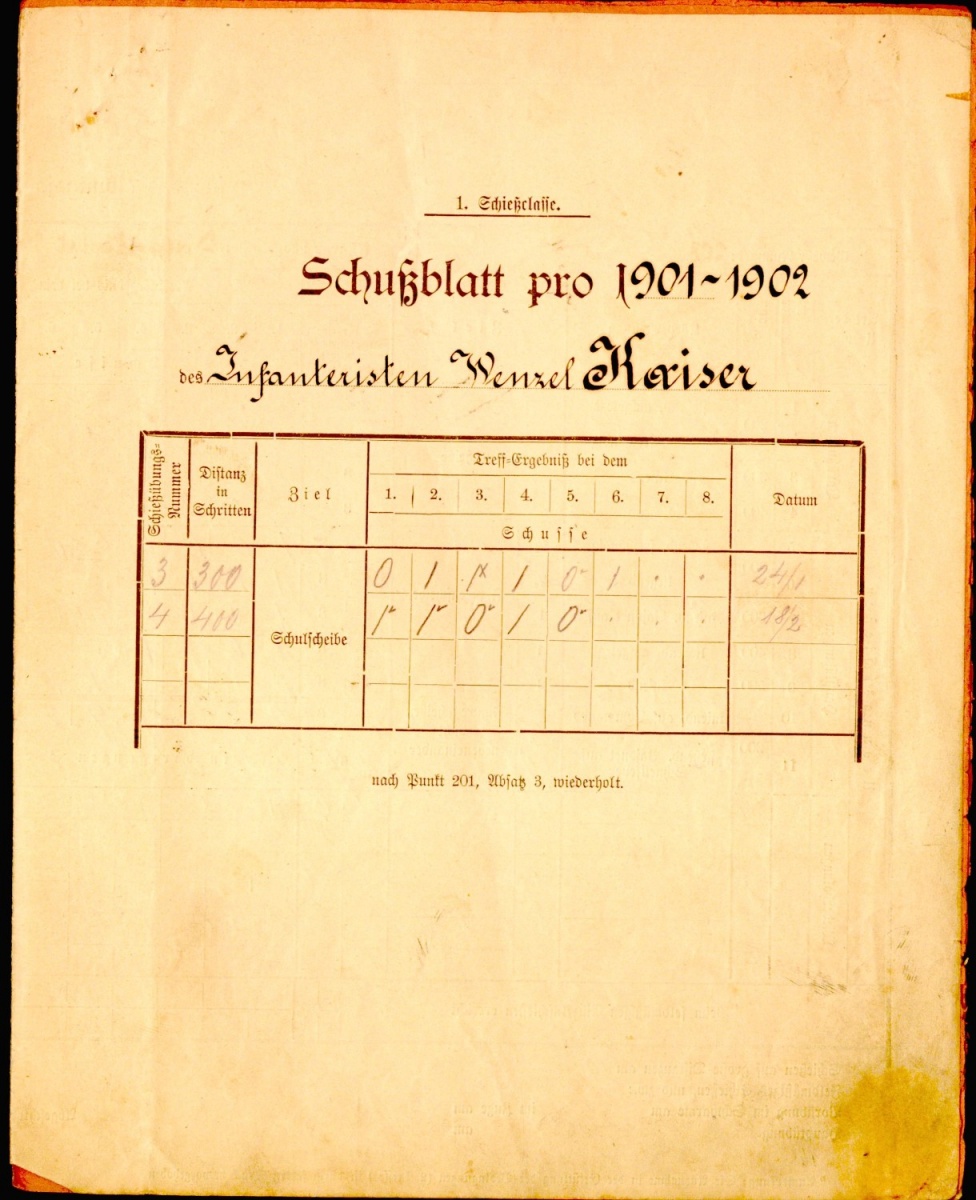 1. Schießclasse.
Schußblatt pro 1901~1902
des Infanteristen Wenzel Kaiser
Schießübungs-
Nummer
Distanz
in
Schritten
Ziel
Treff-Ergebniß bei dem
1. 2. 3. 4. 5. 6. 7. 8.
Schusse
Datum
3 300 0 1 1x 1 0 1 . . 24/1
4 400 1 1 0 1 0 . . . 18/2
Schulscheibe
nach Punkt 201, Absatz 3, wiederholt.